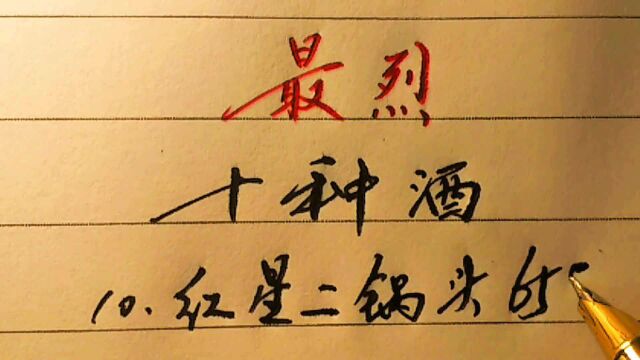 最烈
十种酒
10.红星二锅头65°